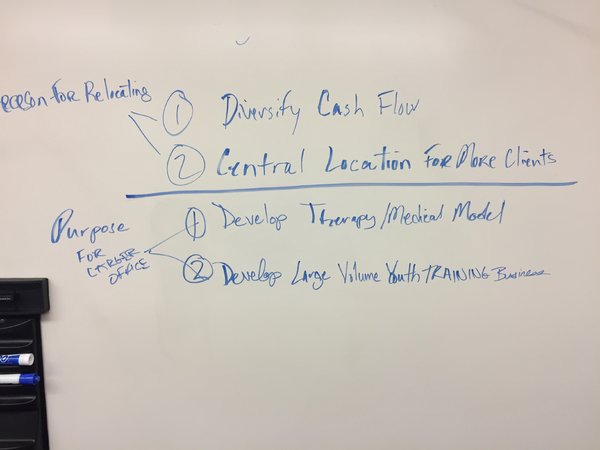 Reason For Relocating
① Diversify Cash Flow
② Central Location For More Clients
Purpose
FOR
LARGER
OFFICE
① Develop Therapy/Medical Model
② Develop Large Volume Youth TRAINING Business